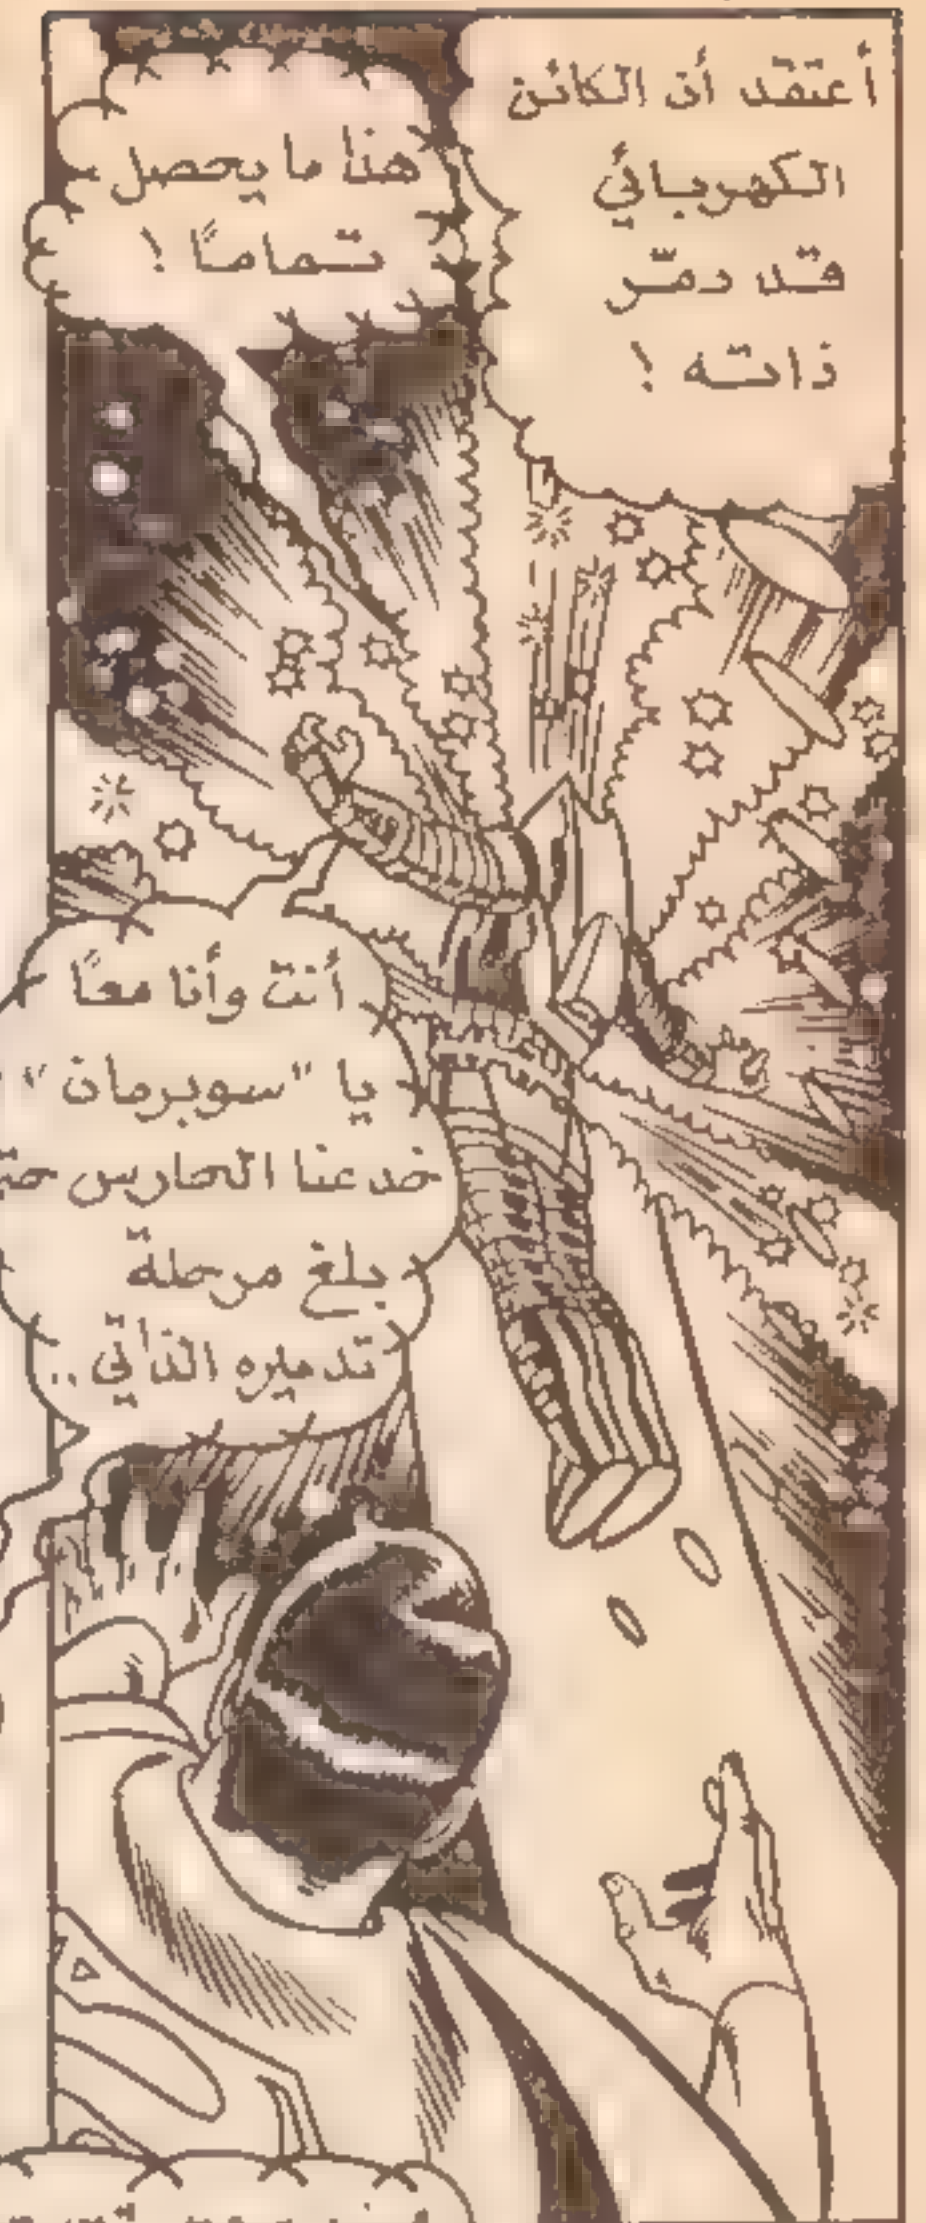 أعتقد أن الكائن
الكهربائي
قد دمّر
ذاته !
هذا ما يحصل
تماماً !
أنت وأنا معاً
يا "سوبرمان"
خدعنا الحارس
بلغ مرحلة
تدميره الذاتي ..